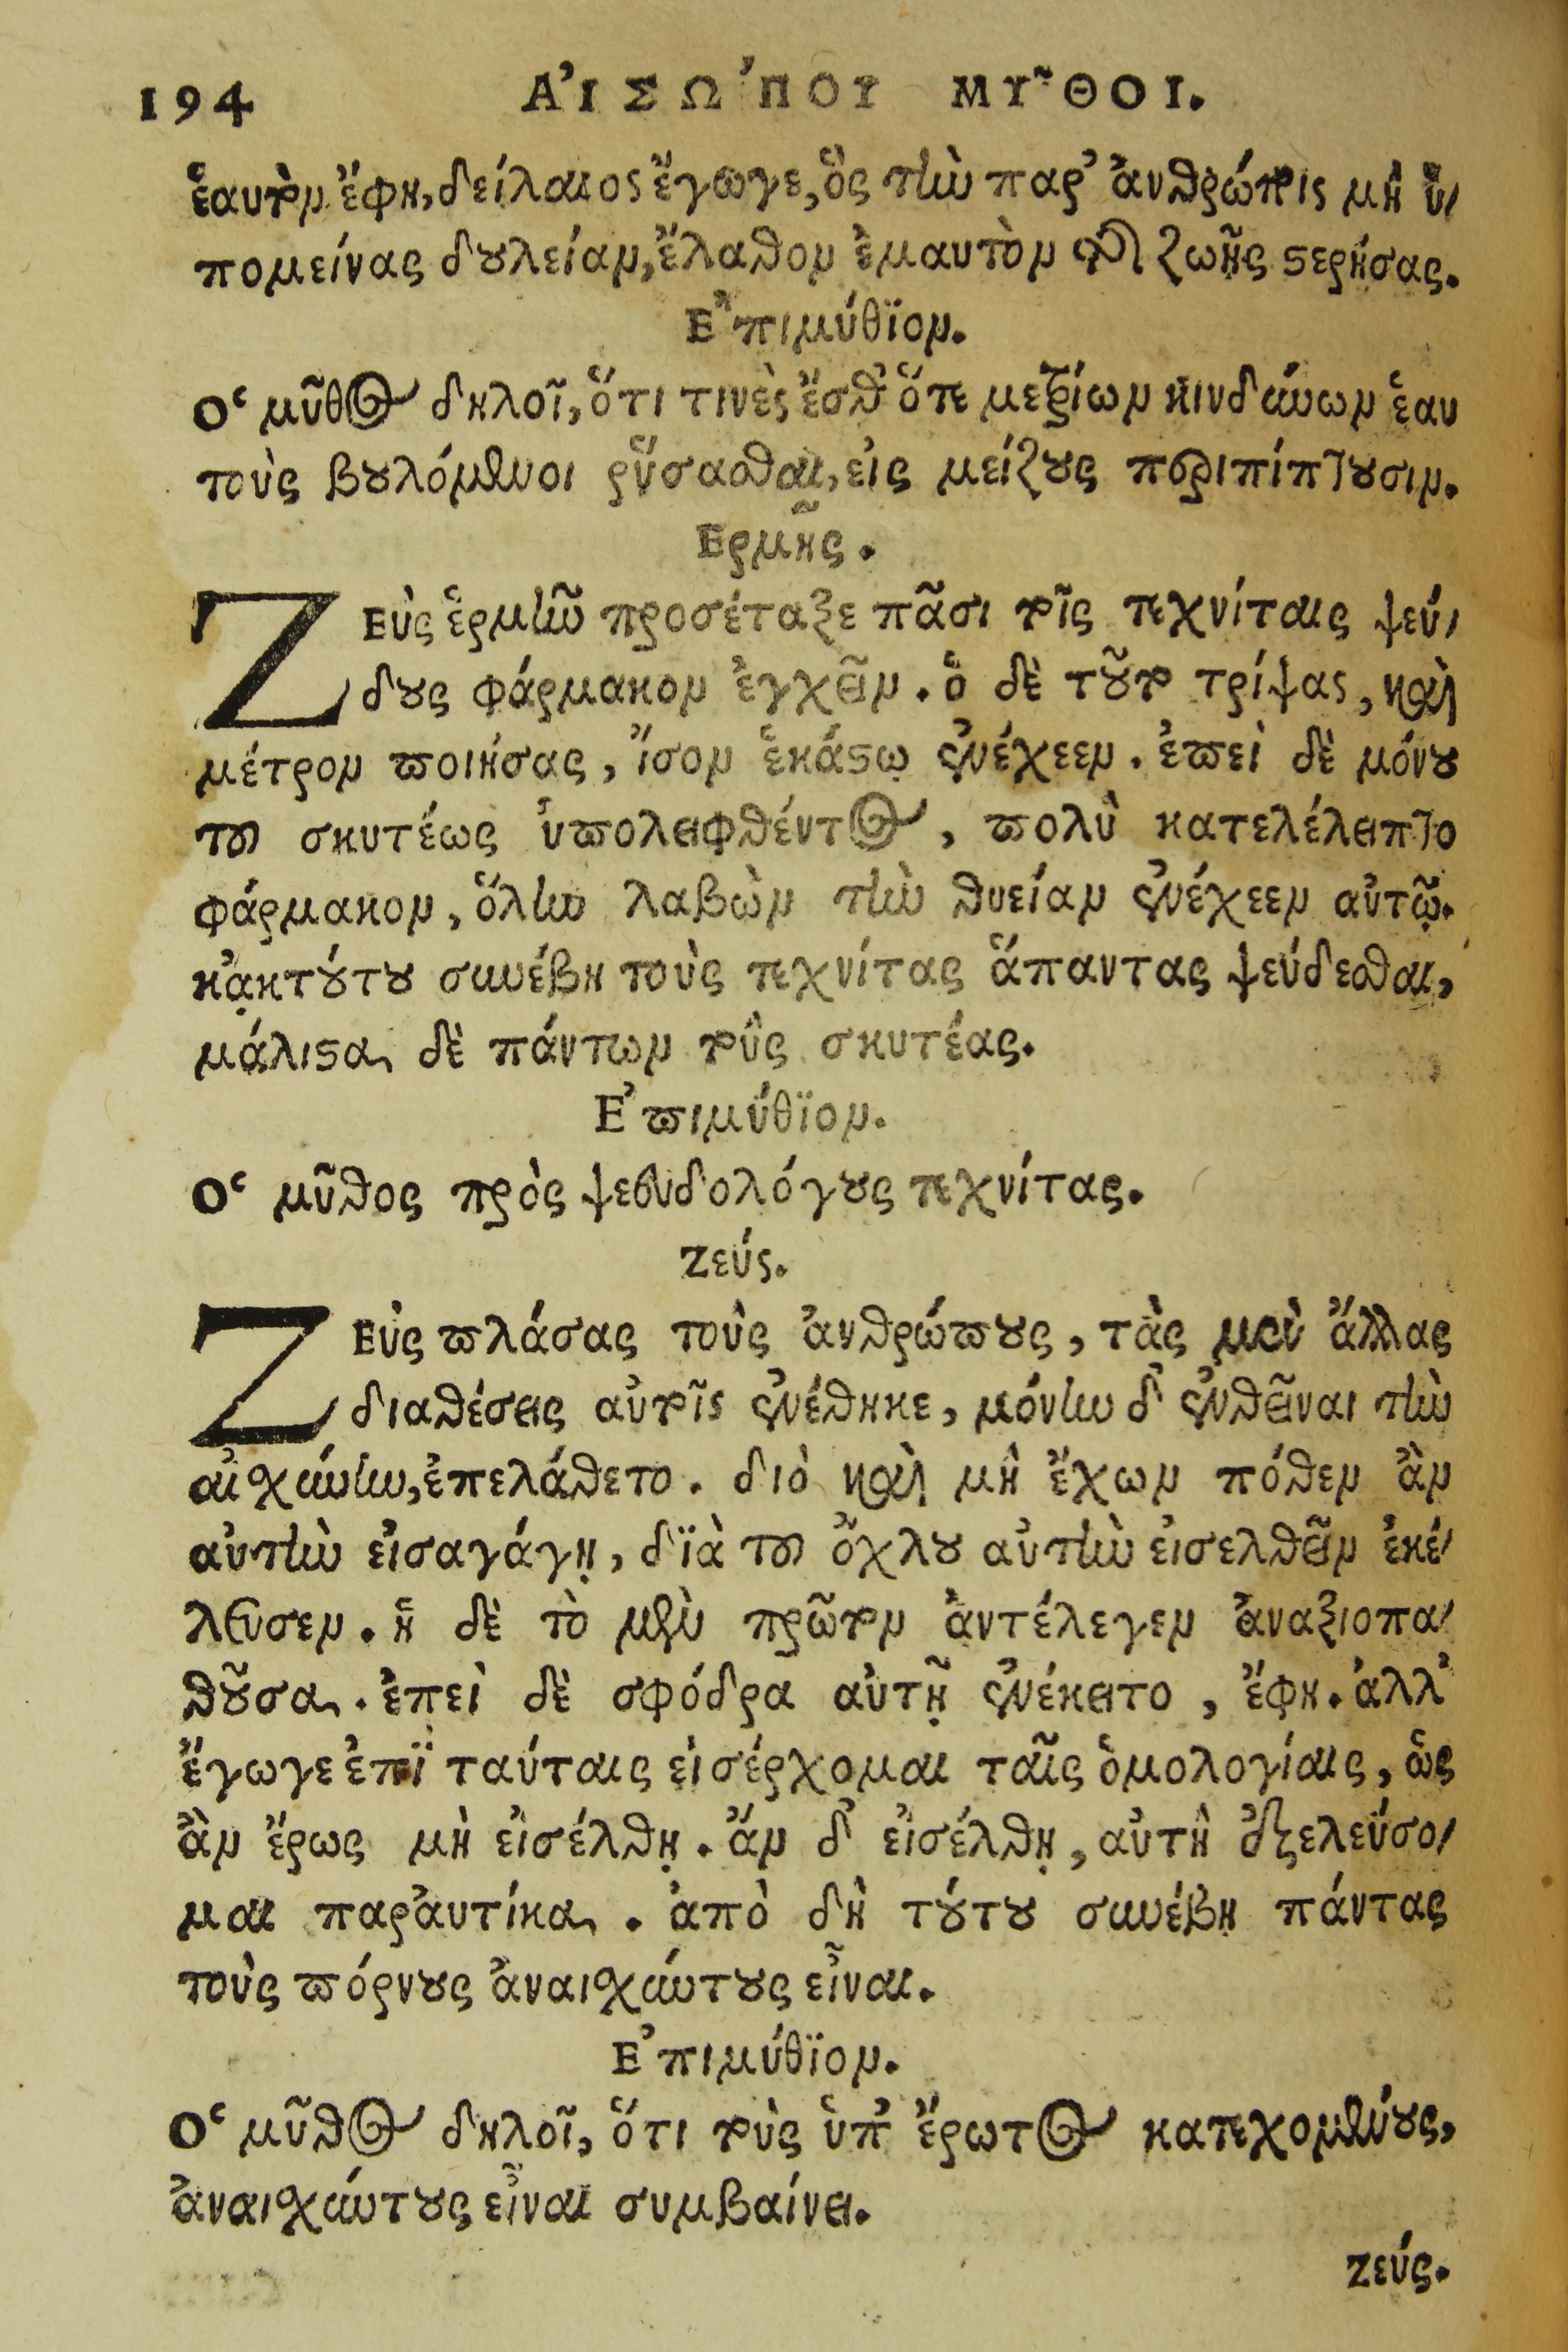 194 ΑἸΣΩ´ΠΟΥ ΜΥ͂ΘΟΙ.
ἑαυτὸν ἔφη, δείλαιος ἔγωγε, ὃς τὴν παρ' ἀνθρώποις μὴ ὑ-
πομείνας δουλείαν, ἔλαθον ἐμαυτὸν τῆς ζωῆς στερήσας.
Ἐπιμύθϊον.
Ὁ μῦθος δηλοῖ, ὅτι τινὲς ἔσθ' ὅτε μετρίων κινδύνων ἑαυ
τοὺς βουλόμενοι ῥύσασθαι, εἰς μείζους περιπίπτουσιν.
Ἑρμῆς.
ΖΕὺς ἑρμῆν προσέταξε πᾶσι τοῖς τεχνίταις ψεύ-
δους φάρμακον ἐγχεῖν. ὁ δὲ τοῦτο τρίψας, καὶ
μέτρον ποιήσας, ἴσον ἑκάστῳ ἐνέχεεν. ἐπεὶ δὲ μόνου
τοῦ σκυτέως ὑπολειφθέντος, πολὺ κατελέλειπτο
φάρμακον, ὅλην λαβὼν τὴν θυείαν ἐνέχεεν αὐτῷ.
κᾀκτούτου συνέβη τοὺς τεχνίτας ἅπαντας ψεύδεσθαι,
μάλιστα δὲ πάντων τοὺς σκυτέας.
Ἐπιμύθϊον.
Ὁ μῦθος πρὸς ψευδολόγους τεχνίτας.
Ζεύς.
ΖΕὺς πλάσας τοὺς ἀνθρώπους, τὰς μὲν ἄλλας
διαθέσεις αὐτοῖς ἐνέθηκε, μόνην δ' ἐνθεῖναι τὴν
αἰσχύνην, ἐπελάθετο. διὸ καὶ μὴ ἔχων πόθεν ἂν
αὐτὴν εἰσαγάγῃ, δϊὰ τοῦ ὄχλου αὐτὴν εἰσελθεῖν ἐκέ-
λευσεν. ἡ δὲ τὸ μὲν πρῶτον ἀντέλεγεν ἀναξιοπα-
θοῦσα. ἐπεὶ δὲ σφόδρα αὐτῇ ἐνέκειτο, ἔφη. ἀλλ'
ἔγωγε ἐπῒ ταύταις εἰσέρχομαι ταῖς ὁμολογίαις, ὡς
ἂν ἔρως μὴ εἰσέλθῃ. ἄν δ' εἰσέλθῃ, αὐτὴ ἐξελεύσο-
μαι παραυτίκα. ἀπὸ δὴ τούτου συνέβῃ πάντας
τοὺς πόρνους ἀναισχύντους εἶναι.
Ἐπιμύθϊον.
Ὁ μῦθος δηλοῖ, ὅτι τοὺς ὑπ' ἔρωτος κατεχομένους,
ἀναισχύντους εἶναι συμβαίνει.
Ζεύς.